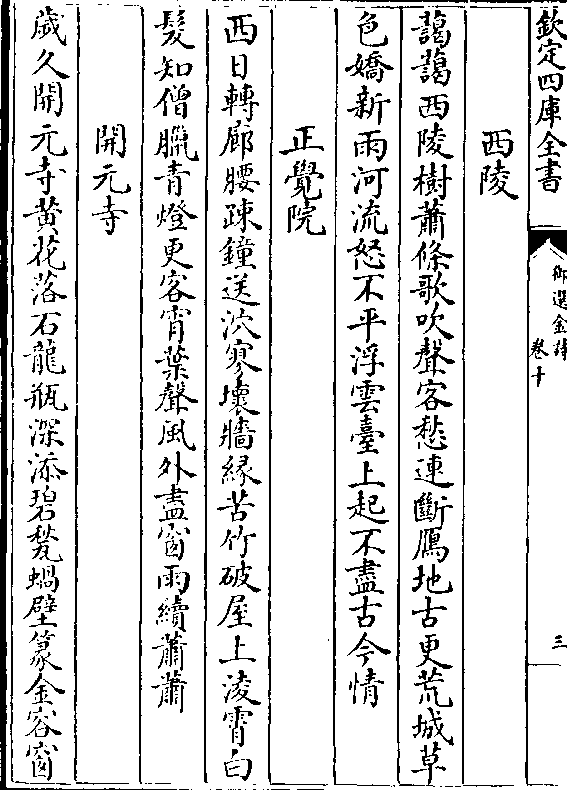 欽定四庫全書
御選金詩
卷十
三
西陵
藹藹西陵樹蕭條歌吹聲客愁連斷鴈地古更荒城草
色嬌新雨河流怒不平浮雲臺上起不盡古今情
正覺院
西日轉廊腰疎鐘送泬寥壞牆緣苦竹破屋上凌霄白
髮知僧臘青燈更客宵葉聲風外盡窗雨續蕭蕭
開元寺
歲久開元寺黄花落石龍瓶深添碧甃蝸壁篆金容窗